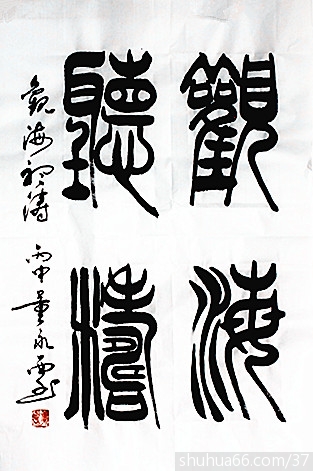 觀海
聽濤
觀海聽濤
丙申董永
shuhua66.com/37